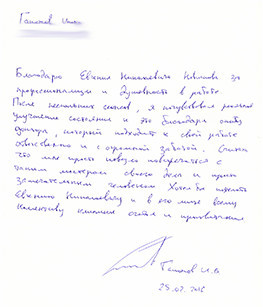 Благодарю Евгения Николаевича за
профессионализм и душевность в работе
После нескольких сеансов, я почувствовал реальное
улучшение состояния и это благодаря опыту
доктора, который подходит к своей работе
ответственно и с огромной заботой. Считаю
что мне просто повезло повстречаться с
таким мастером своего дела и просто
замечательным человеком. Хотел бы пожелать
Евгению Николаевичу и в его лице всему
Коллективу клиники успехов и процветания
29.02.2016